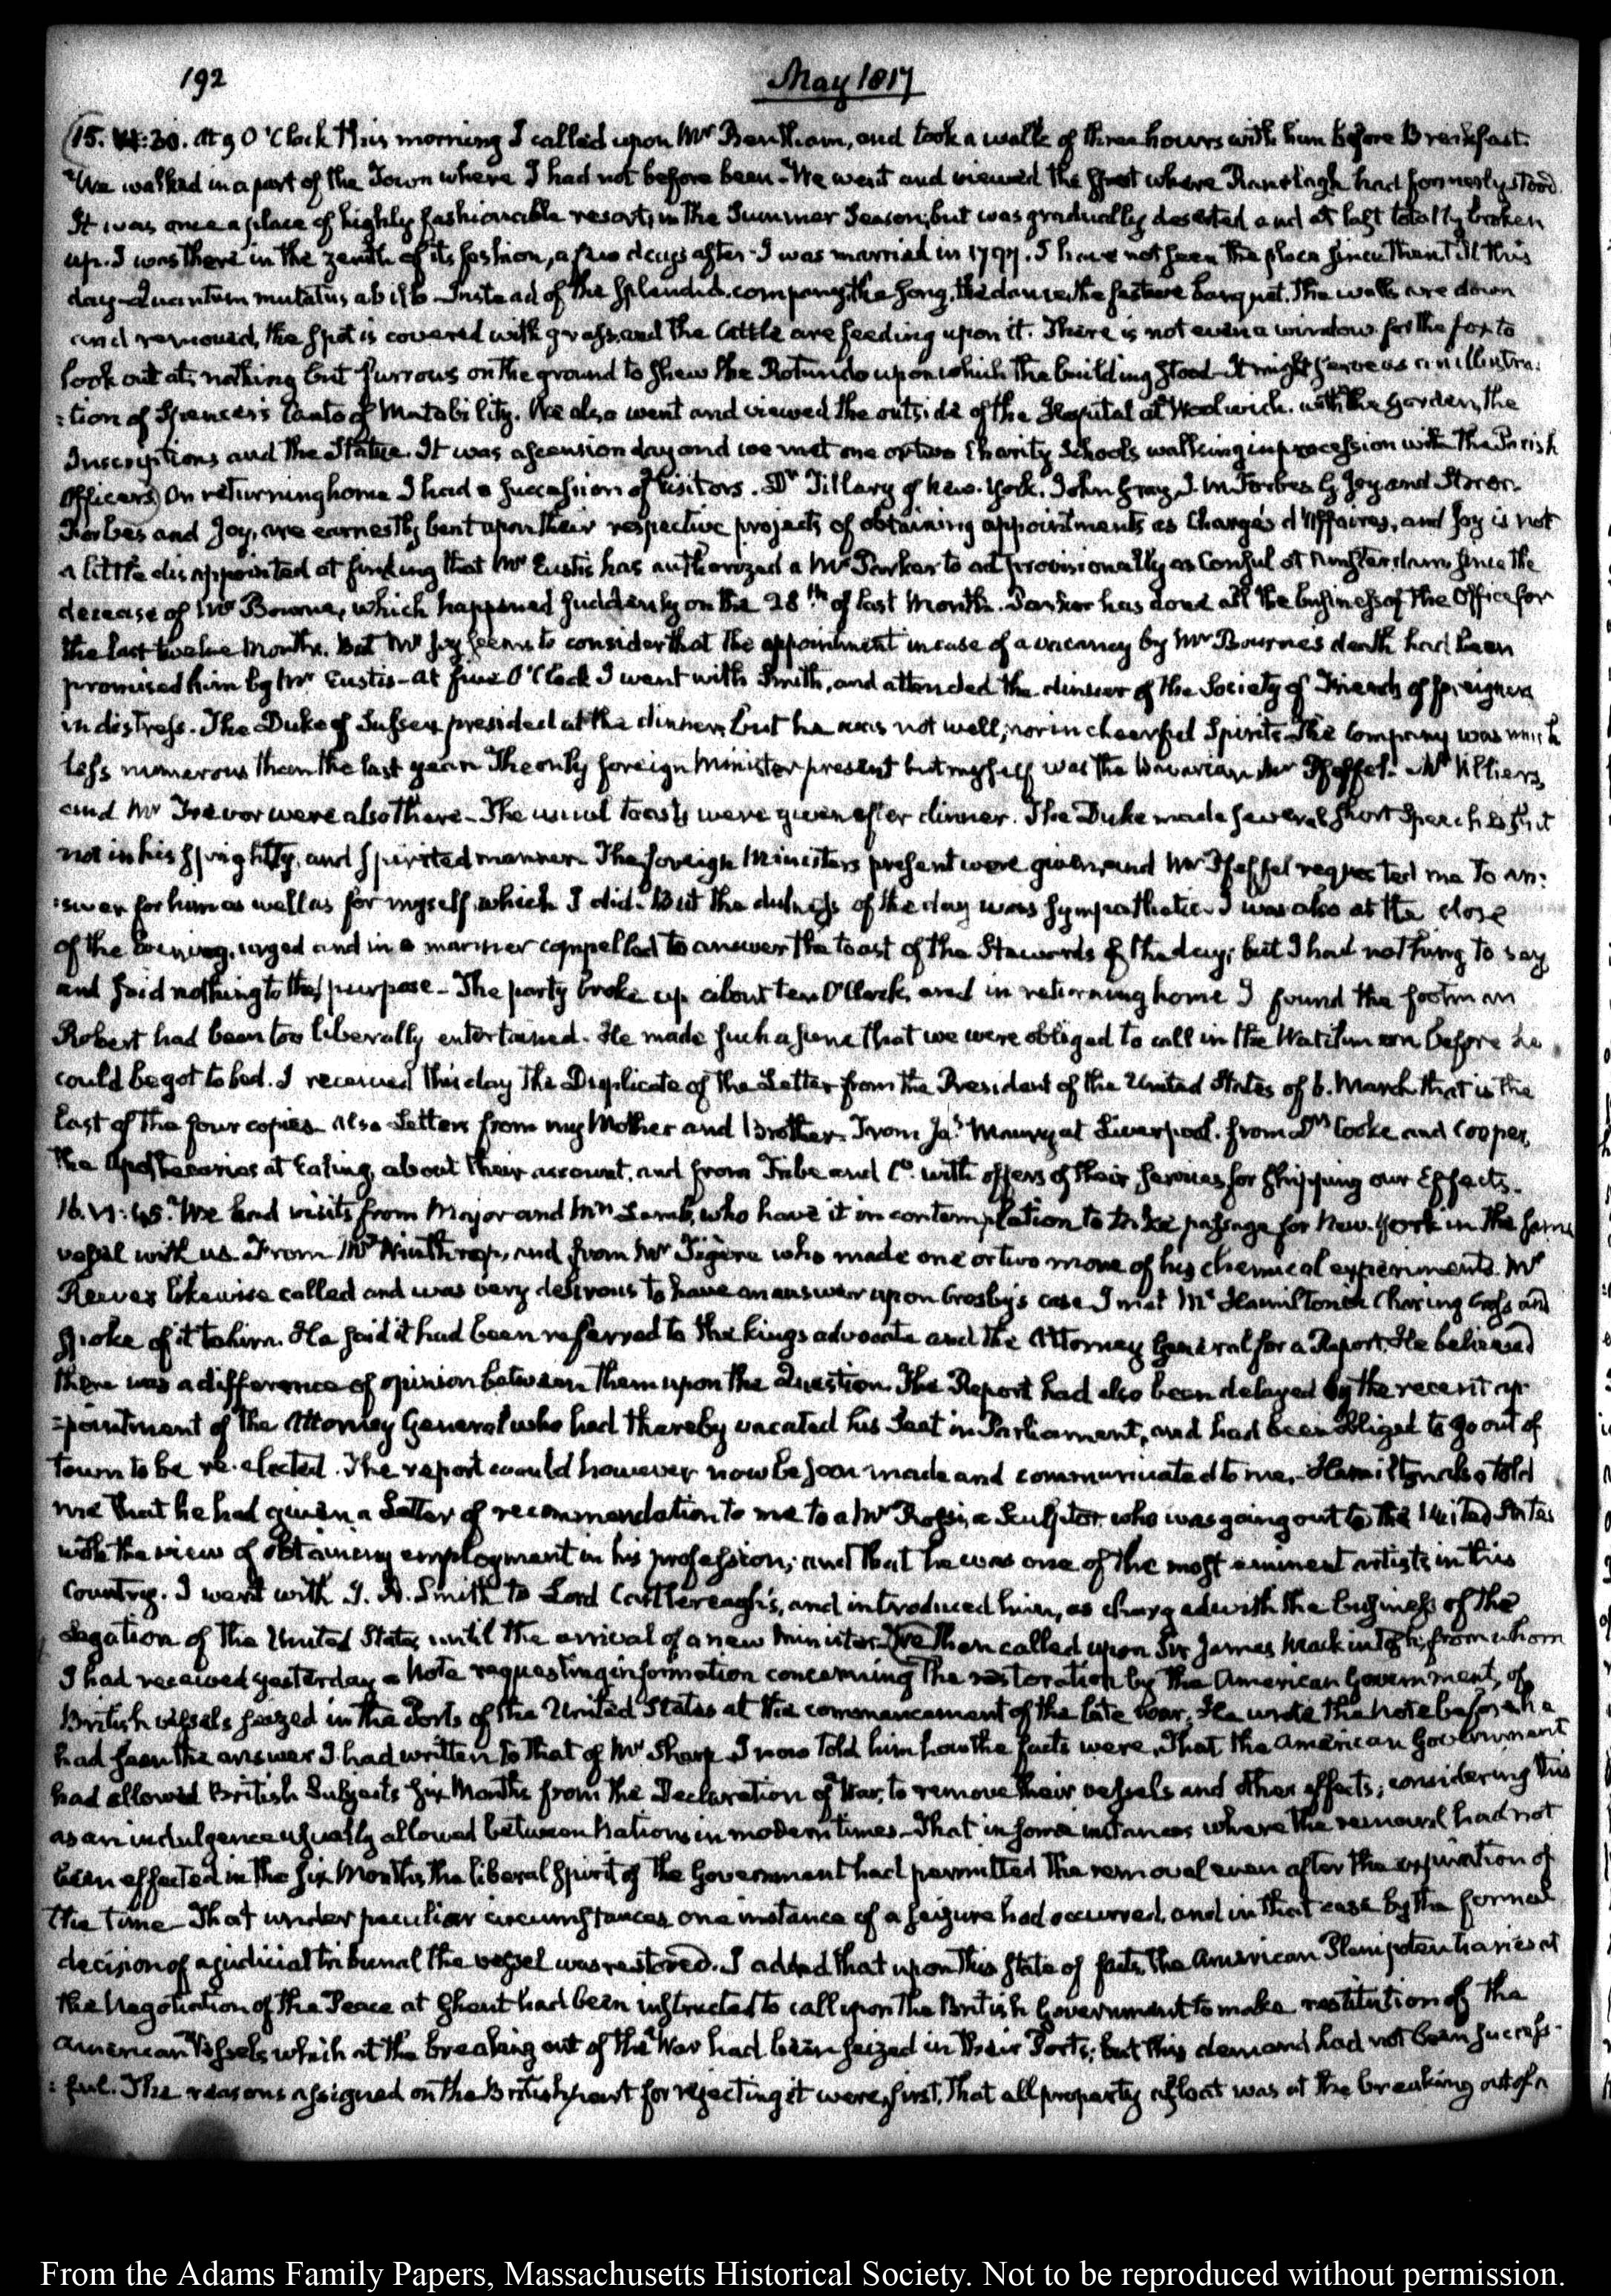 192
May 1817
15. VI:30. At 9 O'Clock this morning I called upon Mr Bentham, and took a walk of three hours with him before Breakfast.
We walked in a part of the Town where I had not before been - We went and viewed the spot where Ranelagh had formerly stood.
It was once a place of highly fashionable resort, in the Summer Season, but was gradually deserted and at last totally broken
up. I was there in the zenith of its fashion, a few days after I was married in 1797. I have not seen the place since then till this
day - Quantum mutatus ab illo - Instead of the splendid company, the song, the dance, the festive banquet. The walls are down
and removed, the spot is covered with grass, and the Cattle are feeding upon it. There is not even a window for the fox to
look out at; nothing but furrows on the ground to shew the Rotundo upon which the building stood - It might serve as an illustra:
:tion of Spencer's Canto of Mutability. We also went and viewed the outside of the Hospital at Woolwich. with the Garden, the
Inscriptions and the Statue. It was ascension day and we met one or two Charity Schools walking in procession with the Parish
Officers) On returning home I had a succession of Visitors. Dr Tillary of New-York. John Gray, J. M. Forbes, G. Joy and Storer.
Forbes and Joy, are earnestly bent upon their respective projects of obtaining appointments as Chargés d'Affaires, and Joy is not
a little disappointed at finding that Mr Eustis has authorized a Mr Parker to act provisionally as Consul at Amsterdam, since the
decease of Mr Bourne, which happened suddenly on the 28th of last Month. Parker has done all the business of the Office for
the last twelve Months. But Mr Joy seems to consider that the appointment in case of a vacancy by Mr Bourne's death had been
promised him by Mr Eustis - At five O'Clock I went with Smith, and attended the dinner of the Society of Friends of foreigners
in distress. The Duke of Sussex presided at the dinner, but he was not well, nor in cheerful Spirits. The Company was much
less numerous than the last year. The only foreign Minister present but myself was the Bavarian Mr Pfeffel. Mr Villiers,
and Mr Trevor were also there - The usual toasts were given after dinner. The Duke made several short Speeches, but
not in his sprightly, and spirited manner. The foreign Ministers present were given, and Mr Pfeffel requested me to an:
:swer for him as well as for myself, which I did. But the dulness of the day was sympathetic. I was also at the close
of the Evening, urged and in a manner compelled to answer the toast of the Stewards of the day; but I had nothing to say
and said nothing to the purpose - The party broke up about ten O'Clock, and in returning home I found the footman
Robert had been too liberally entertained. He made such a scene that we were obliged to call in the Watchman before he
could be got to bed. I received this day the Duplicate of the Letter from the President of the United States of 6. March that is the
last of the four copies. Also Letters from my Mother and Brother. From Jas Maury at Liverpool. from Drs Cooke and Cooper,
the Apothecaries at Ealing, about their account, and from Tribe and Co. with offers of their services for shipping our Effects.
16. VI:45. We had visits from Major and Mrs Lamb, who have it in contemplation to take passage for New-York in the same
vessel with us. From Mr Winthrop, and from Mr Tigere who made one or two more of his chemical experiments. Mr
Reeves likewise called and was very desirous to have an answer upon Crosby's case. I met Mr Hamilton at Charing Cross and
spoke of it to him. He said it had been referred to the King's advocate and the Attorney General for a Report. He believed
there was a difference of opinion between them upon the Question. The Report had also been delayed by the recent ap
=pointment of the Attorney General who had thereby vacated his Seat in Parliament, and had been obliged to go out of
town to be re-elected. The report would however now be soon made and communicated to me. Hamilton also told
me that he had given a Letter of recommendation to me to a Mr Rossi, a Sculptor who was going out to the United States
with the view of obtaining employment in his profession; and that he was one of the most eminent artists in this
Country. I went with J. A. Smith to Lord Castlereagh's, and introduced him, as charged with the business of the
Legation of the United States, until the arrival of a new Minister. (We then called upon Sir James Mackintosh; from whom
I had received yesterday a Note requesting information concerning the restoration by the American Government, of
British vessels seized in the Ports of the United States at the commencement of the late War; He wrote the note before he
had seen the answer I had written to that of Mr Sharp. I now told him how the facts were. That the American Government
had allowed British Subjects six Months from the Declaration of War, to remove their vessels and other effects; considering this
as an indulgence usually allowed between Nations in modern times - That in some instances where the removal had not
been effected in the six Months, the liberal spirit of the Government had permitted the removal even after the expiration of
the time - That under peculiar circumstances one instance of a seizure had occurred, and in that case by the formal
decision of a judicial tribunal the vessel was restored. I added that upon this state of facts, the American Plenipotentiaries at
the Negotiation of the Peace at Ghent had been instructed to call upon the British Government to make restitution of the
American Vessels which at the breaking out of the War had been seized in their Ports; but this demand had not been success-
:ful. The reasons assigned on the British part for rejecting it were, first, That all property afloat was at the breaking out of a
From the Adams Family Papers, Massachusetts Historical Society. Not to be reproduced without permission.